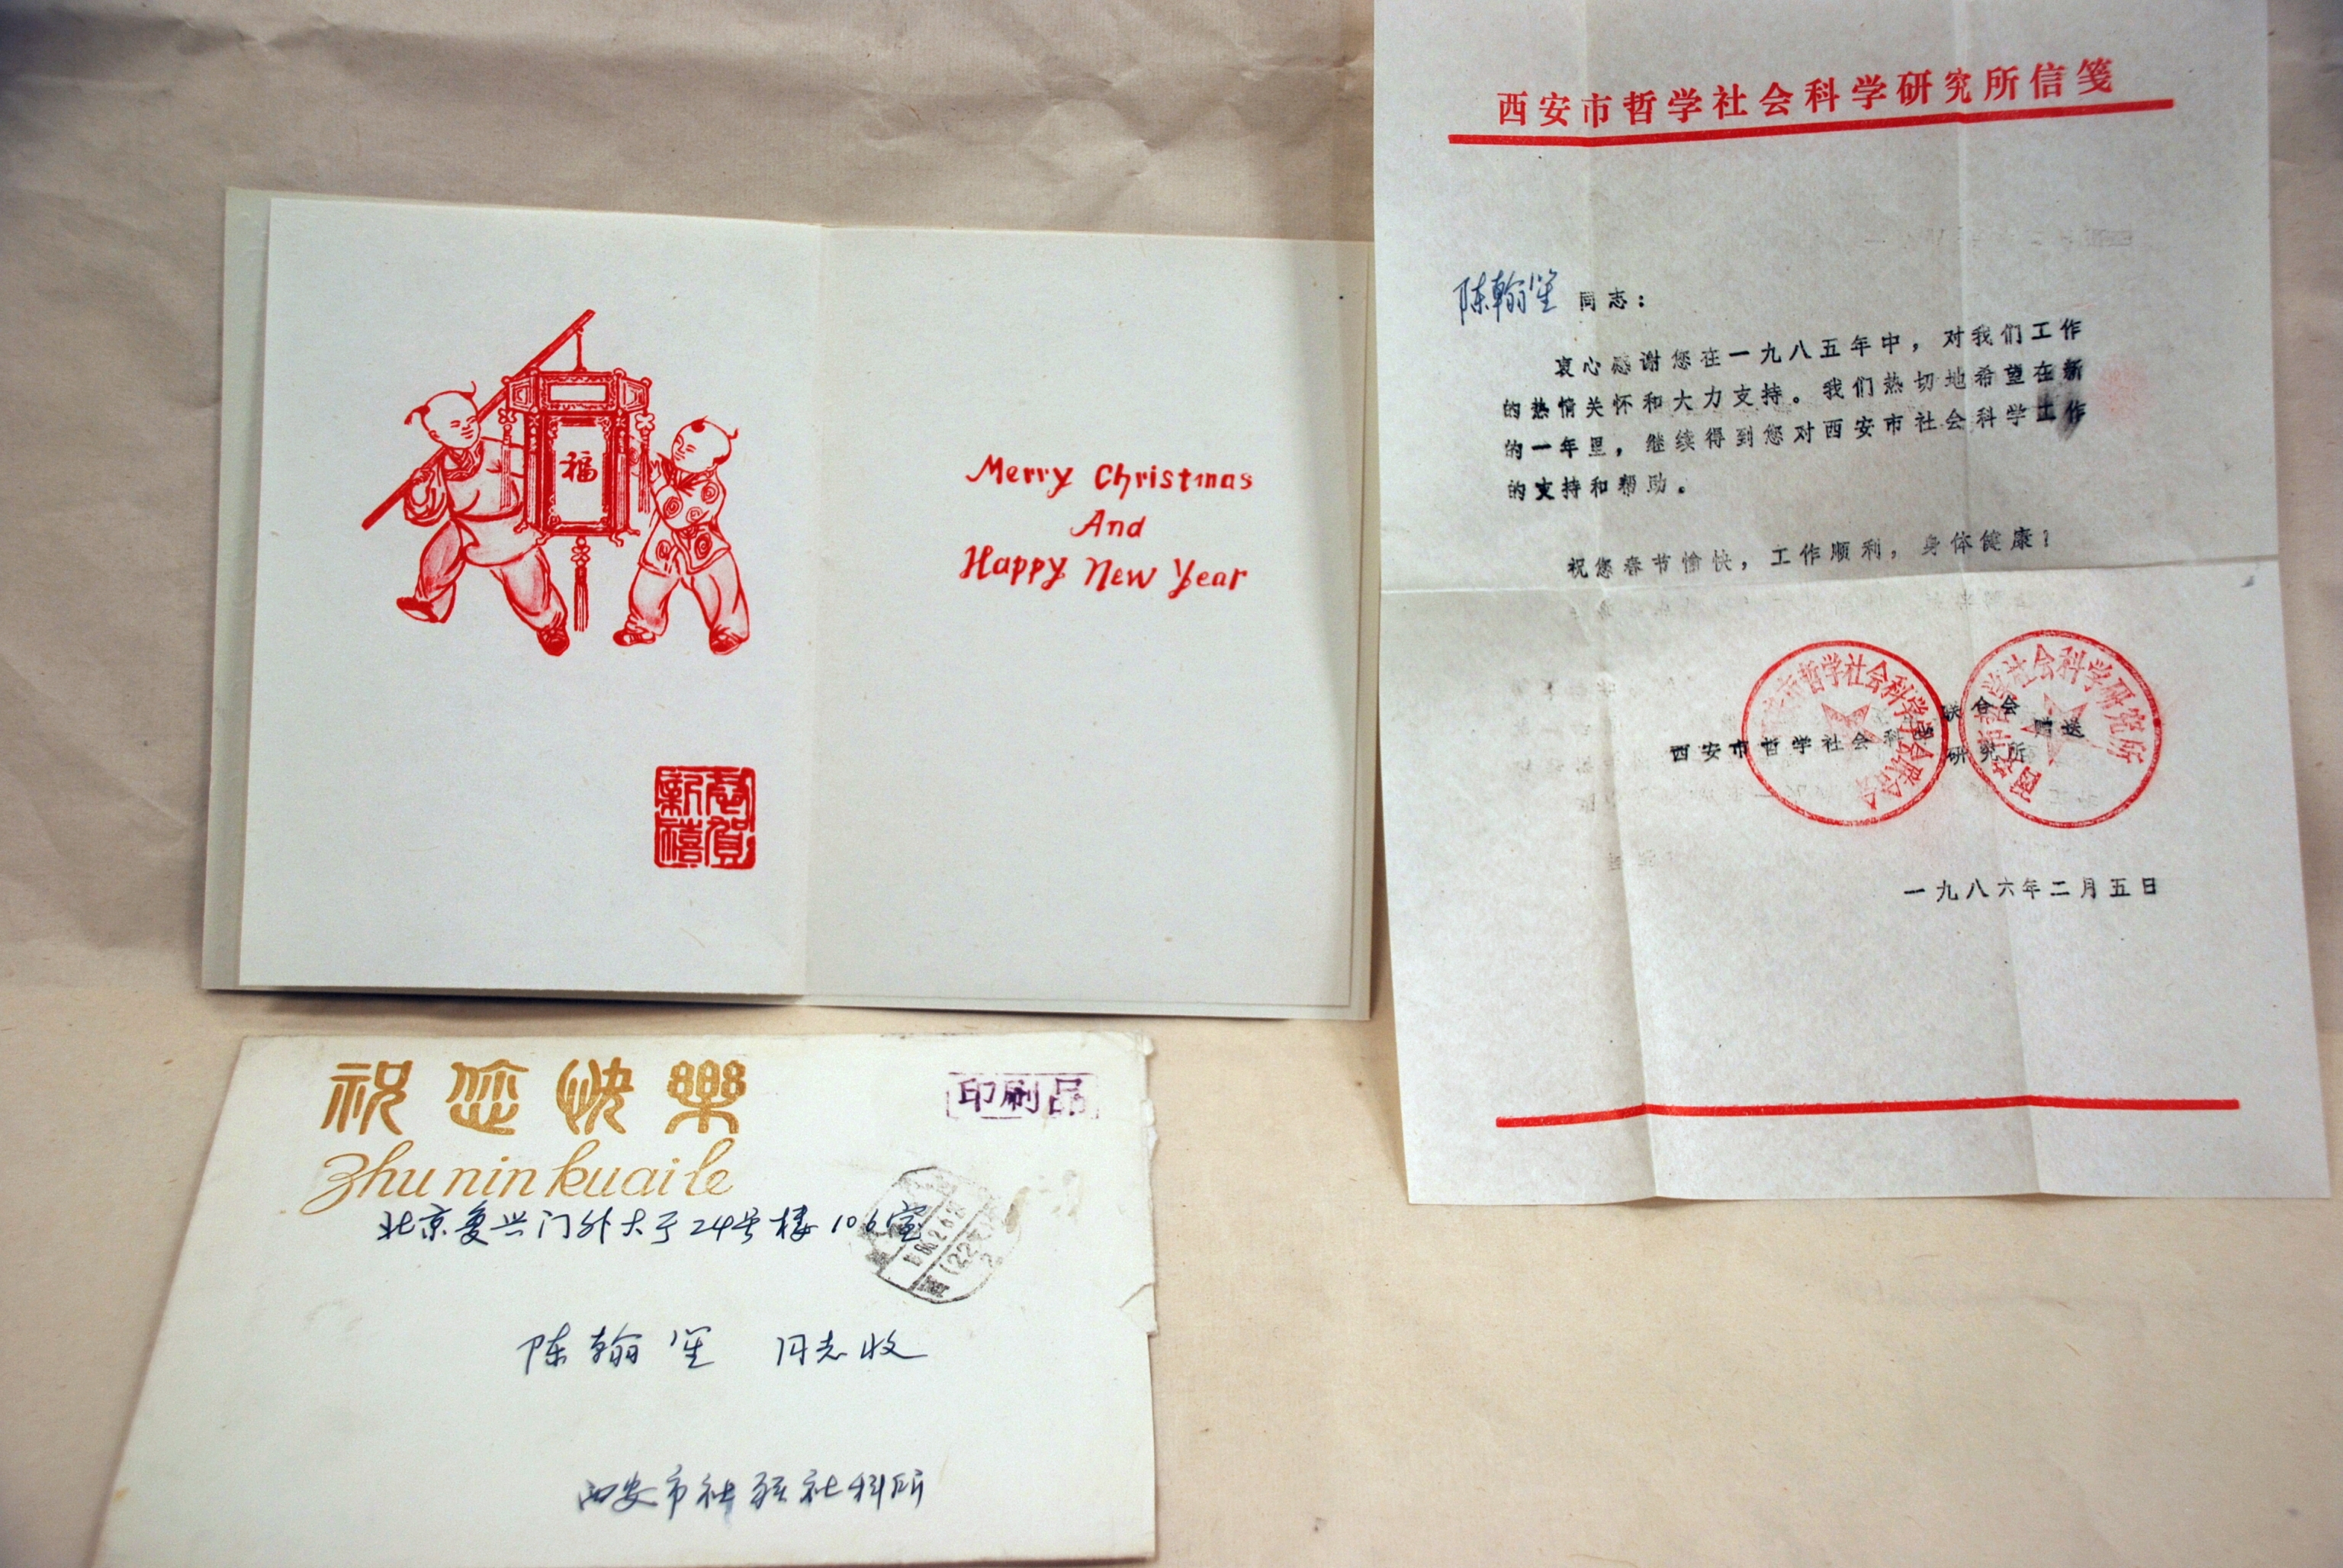 福
恭贺
新禧
Merry Christmas
And
Happy New Year
西安市哲学社会科学研究所信笺
陈翰笙 同志：
衷心感谢您在一九八五年中，对我们工作
的热情关怀和大力支持。我们热切地希望在新
的一年里，继续得到您对西安市社会科学工作
的支持和帮助。
祝您春节愉快，工作顺利，身体健康！
联合会
西安市哲学社会科学 赠送
研究所
西安市哲学社会科学学会联合会
西安市哲学社会科学研究所
一九八六年二月五日
祝您快樂
印刷品
Zhu nin kuai le
北京复兴门外大于24号楼106室
陈翰笙 同志收
西安市社联社科所